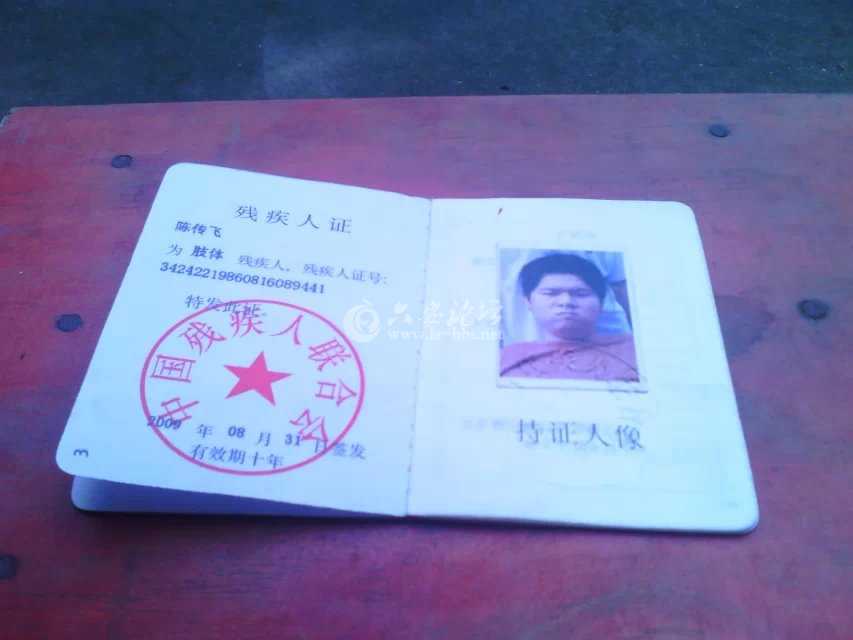 残疾人证
陈传飞
为 肢体 残疾人，残疾人证号：
34242219860816089441
特发此证
中国残疾人联合会
2009 年 08 月 31 日签发
有效期十年
3
持证人像
六安论坛